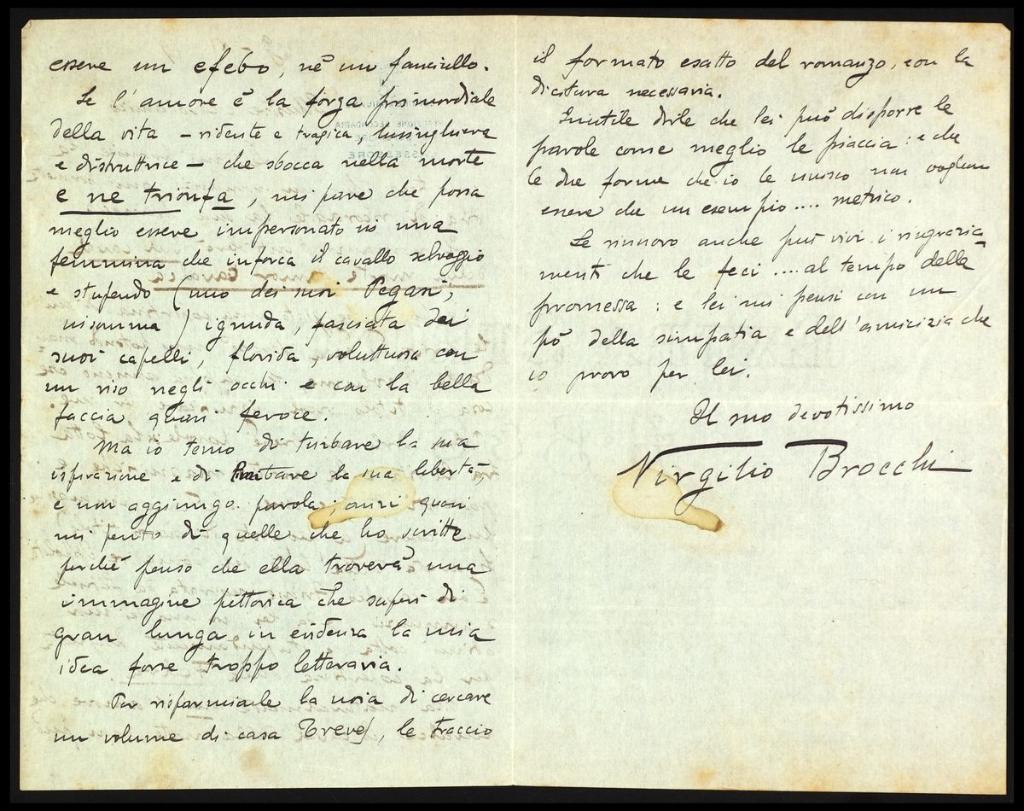 essere un efebo, nè un fanciullo.
Se l'amore è la forza primordiale
della vita – ridente e tragica, lusinghiera
e distruttrice – che sbocca nella morte
e ne trionfa, mi pare che possa
meglio essere impersonato in una
femmina che inforca il cavallo selvaggio
e stupendo (uno dei suoi Pegasi,
insomma) ignuda, fasciata dei
suoi capelli, florida, voluttuosa con
un riso negli occhi e con la bella
faccia quasi feroce.
Ma io temo di turbare la sua
ispirazione e di la sua libertà,
e non aggiungo parola; anzi quasi
mi pento di quelle che ho scritte
perchè penso che ella troverà una
immagine pittorica che superi di
gran lunga in evidenza la mia
idea forse troppo letteraria.
Per risparmiarle la noia di cercare
un volume di casa Treves, le traccio
il formato esatto del romanzo, con la
dicitura necessaria.
Inutile dirle che lei può disporre le
parole come meglio le piaccia: e che
le due forme che io le unisco non vogliono
essere che un esempio .... metrico.
Le rinnovo anche più vivi i ringrazia-
menti che le feci .... al tempo della
promessa: e lei mi pensi con un
pò della simpatia e dell'amicizia che
io provo per lei.
Il suo devotissimo
Virgilio Brocchi